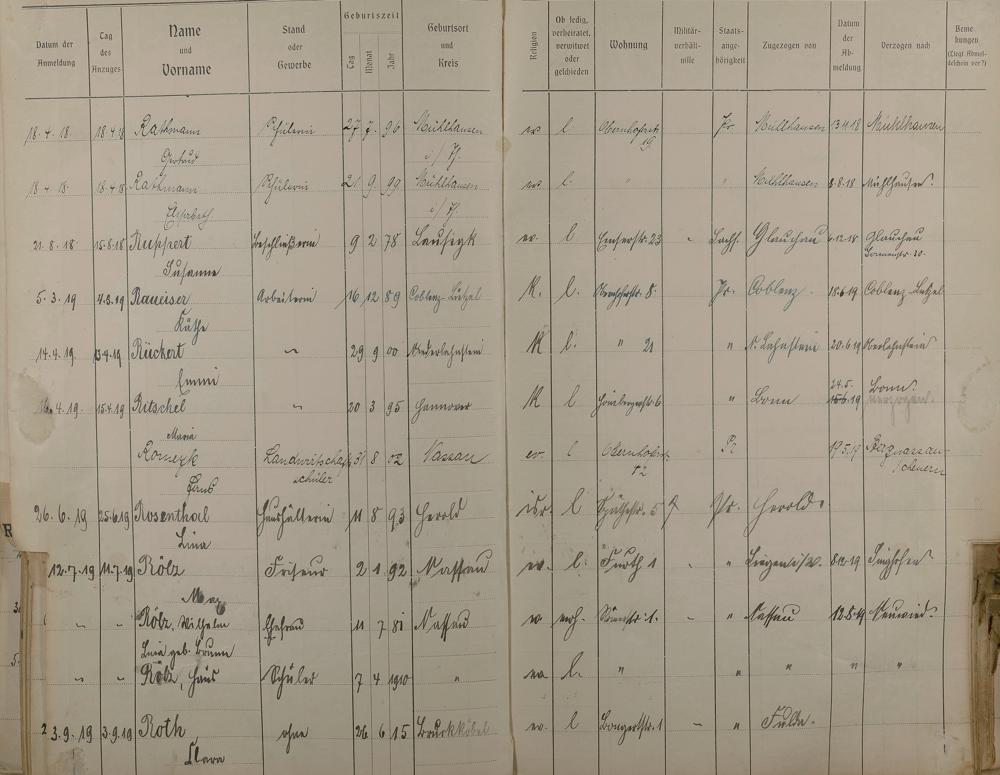 Datum der Anmeldung Tag des Anzuges Name und Vorname Stand oder Gewerbe Geburtszeit Tag Monat Jahr Geburtsort und Kreis Religion Ob ledig, verheiratet, verwitwet oder geschieden Wohnung Militär- verhält- nisse Staats- ange- hörigkeit Zugezogen von Datum der Ab- meldung Verzogen nach Bemer kungen (Liegt Abmel- deschein vor?)
18.4.18. 18.4.18 Rathmann Schülerin 27 7. 96 Mühlhausen ev. l. Obernhoferstr. Pr. Mühlhausen 13.11.18 Mühlhausen
Gertrud i/Th. 19
18.4.18. 18.4.18. Rathmann Schülerin 21 9. 99 Mühlhausen ev. l. " " Mühlhausen 8.8.18 Mühlhausen.
Elisabeth i/Th.
21.8.18 15.8.18 Ruppert Beschließerin 9 2 78 Lausigk ev. l Emserstr. 23 - Sachs. Glauchau 6.12.18 Glauchau
Susanne
5.3.19 4.3.19 Arbeiterin 16 12 89 Coblenz-Lützel K. l. Obernhoferstr. 8. Pr. Coblenz. 18.6.19 Coblenz-Lützel
Käthe
14.4.19. Rückert " 29 9 00 Niederlahnstein K l. " 21 " N. Lahnstein 20.6.19 Oberlahnstein
Emmi 24.5.
.4.19. 15.4.19 Ritschel " 20 3 95 Hannover K l " Bonn 15.6.19 Bonn.
Maria
Landwirtschafts 31 8 02 Nassau ev. l Obernhoferstr. Pr 17.5.19 Bergnassau-
schüler 12 Scheuern
26.6.19 25.6.19 Rosenthal Haushälterin 11 8 93 Herold isr. l Pr. Herold.
R
Lina
12.7.19 11.7.19 Rölz Friseur 2 1. 92 Nassau ev. l. - " Siegen i/W. 8.12.19
Max
" " Rölz, Wilhelm Ehefrau 11 7 81 Nassau ev verh. - " Nassau 12.8.19 Neuwied.
Lina geb.
" " Rölz, Hans Schüler 7 4 1910 " ev l. " " " " "
2 3.9.19 3.9.19 Roth ohne 26 6 15 Bruchköbel ev. l Bongertstr. 1 - " Fulda.
Clara